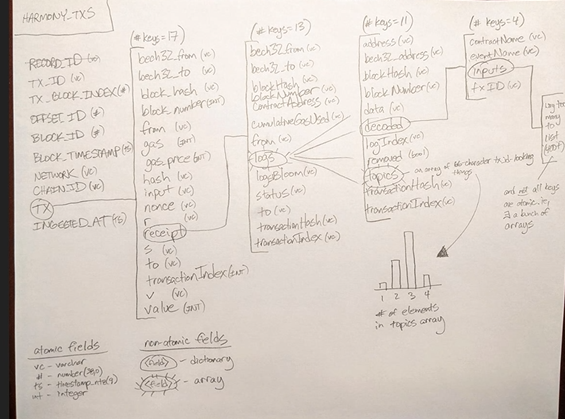 HARMONY_TXS
RECORD_ID (vc)
TX_ID (vc)
TX_BLOCK_INDEX (#)
OFFSET_ID (#)
BLOCK_ID (#)
BLOCK_TIMESTAMP (ts)
NETWORK (vc)
CHAIN_ID (vc)
TX
INGESTED_AT (ts)
(# keys = 17)
bech32_from (vc)
bech32_to (vc)
block_hash (vc)
block_number (INT)
from (vc)
gas (INT)
gas_price (INT)
hash (vc)
input (vc)
nonce (vc)
r (vc)
receipt
s (vc)
to (vc)
transactionIndex (INT)
v (vc)
value (INT)
(# keys = 13)
bech32_from (vc)
bech32_to (vc)
blockHash (vc)
blockNumber (vc)
contractAddress (vc)
cumulativeGasUsed (vc)
from (vc)
logs
logsBloom (vc)
status (vc)
to (vc)
transactionHash (vc)
transactionIndex (vc)
(# keys = 11)
address (vc)
bech32_address (vc)
blockHash (vc)
blockNumber (vc)
data (vc)
decoded
logIndex (vc)
removed (bool)
topics
transactionHash (vc)
transactionIndex (vc)
(# keys = 4)
contractName (vc)
eventName (vc)
inputs
txID (vc)
too
many
to
list
and not all keys
are atomic i.e.,
a bunch of
arrays
an array of 66-character tx_id-looking
things
1 2 3 4
# of elements
in topics array
atomic fields
vc - varchar
# - number(38,0)
ts - timestamp_ntz(9)
int - integer
non-atomic fields
<field> - dictionary
<field> - array